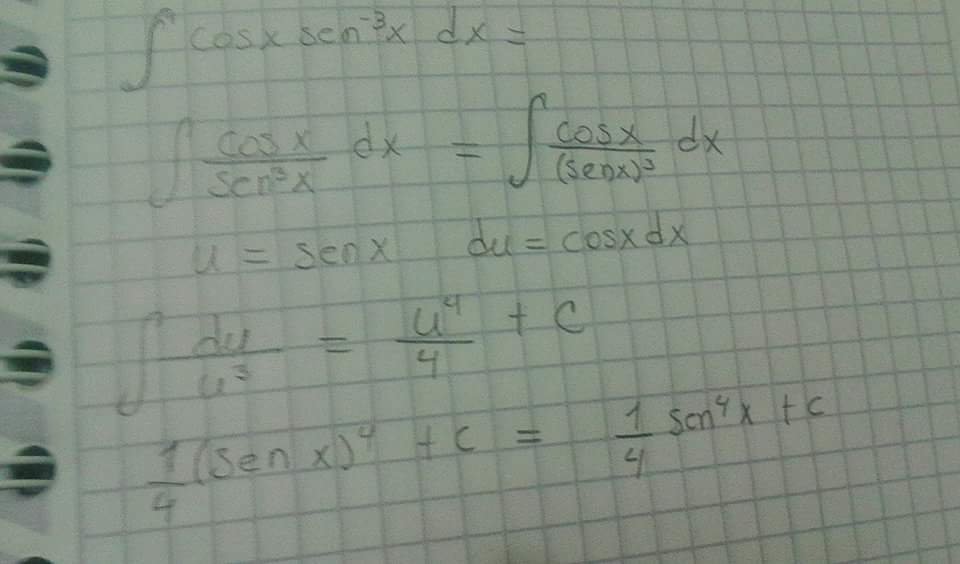 ∫ cosx sen⁻³x dx =
∫ cosx/sen³x dx = ∫ cosx/(senx)³ dx
u = senx du = cosxdx
∫ du/u³ = u⁴/4 + C
1/4 (senx)⁴ + c = 1/4 sen⁴x + c